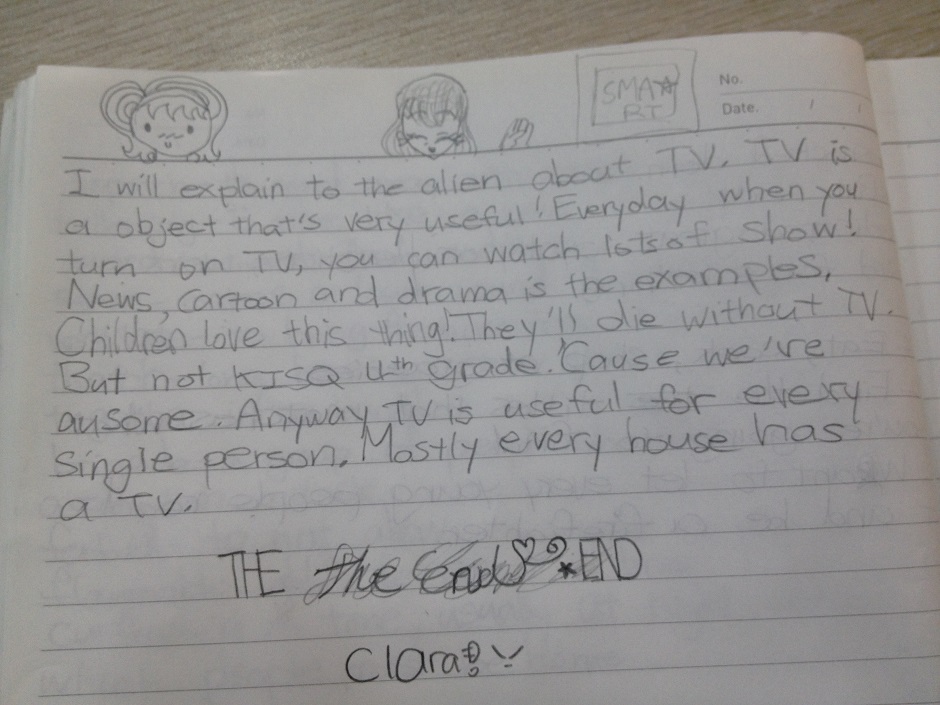 SMA
RT
No.
Date. / /
I will explain to the alien about TV. TV is
a object that's very useful! Everyday when you
turn on TV, you can watch lots of show!
News, Cartoon and drama is the examples.
Children love this thing! They'll die without TV.
But not KISQ 4th grade. 'Cause we're
ausome. Anyway TV is useful for every
single person. Mostly every house has
a TV.
THE the End END
Clara